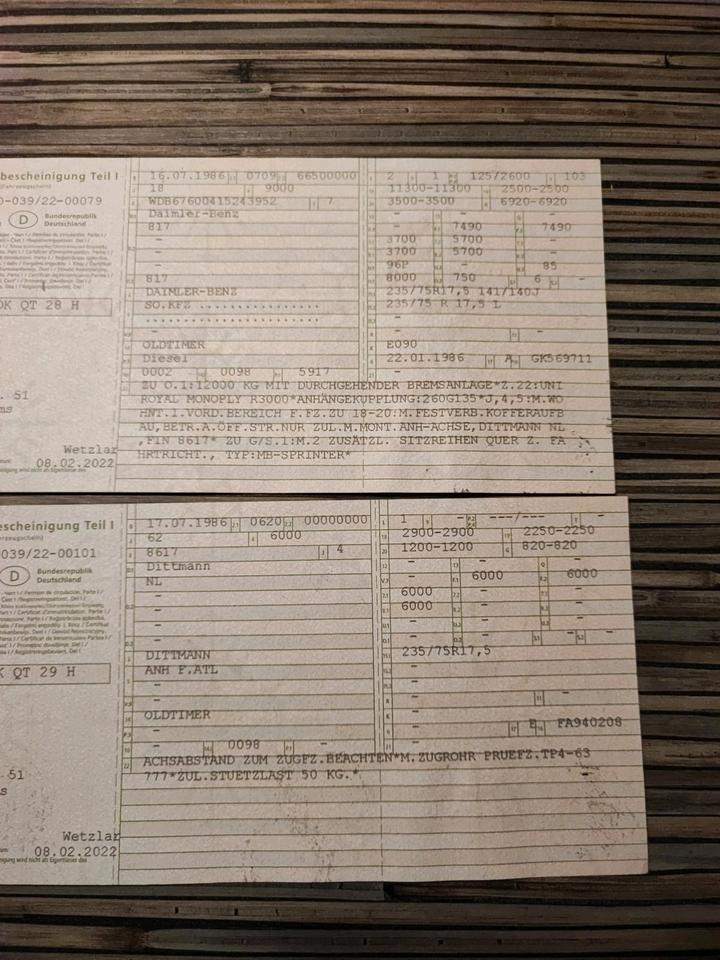 bescheinigung Teil I
-039/22-00079
D Bundesrepublik
Deutschland
OK QT 28 H
. 51
ms
Wetzlar
08.02.2022
16.07.1986 0709 66500000
18 9000
WDB67600415243952 7
Daimler-Benz
817
-
-
-
817
DAIMLER-BENZ
SO.KFZ ................
................
-
OLDTIMER
Diesel
0002 0098 5917
2 1 125/2600 103
11300-11300 2500-2500
3500-3500 6920-6920
- - -
- 7490 7490
3700 5700 -
3700 5700 -
96P - 85
8000 750 6 -
235/75R17,5 141/140J
235/75 R 17,5 L
-
- -
E090
22.01.1986 A GK569711
ZU O.1:12000 KG MIT DURCHGEHENDER BREMSANLAGE*Z.22:UNI
ROYAL MONOPLY R3000*ANHÄNGEKUPPLUNG:260G135*J,4,5:M.WO
HNT.I.VORD.BEREICH F.FZ.ZU 18-20:M.FESTVERB.KOFFERAUFB
AU,BETR.A.ÖFF.STR.NUR ZUL.M.MONT.ANH-ACHSE,DITTMANN NL
,FIN 8617* ZU G/S.1:M.2 ZUSÄTZL. SITZREIHEN QUER Z. FA
HRTRICHT., TYP:MB-SPRINTER*
escheinigung Teil I
039/22-00101
D Bundesrepublik
Deutschland
K QT 29 H
51
s
Wetzlar
08.02.2022
17.07.1986 0620 00000000
62 6000
8617 4
Dittmann
NL
-
-
-
-
DITTMANN
ANH F.ATL
-
-
OLDTIMER
-
- 0098 -
1 - ---/--- -
2900-2900 2250-2250
1200-1200 820-820
- - -
- 6000 6000
6000 - -
6000 - -
- - -
- - - -
235/75R17,5
-
-
- -
-
- E FA940208
ACHSABSTAND ZUM ZUGFZ.BEACHTEN*M.ZUGROHR PRUEFZ.TP4-63
777*ZUL.STUETZLAST 50 KG.*